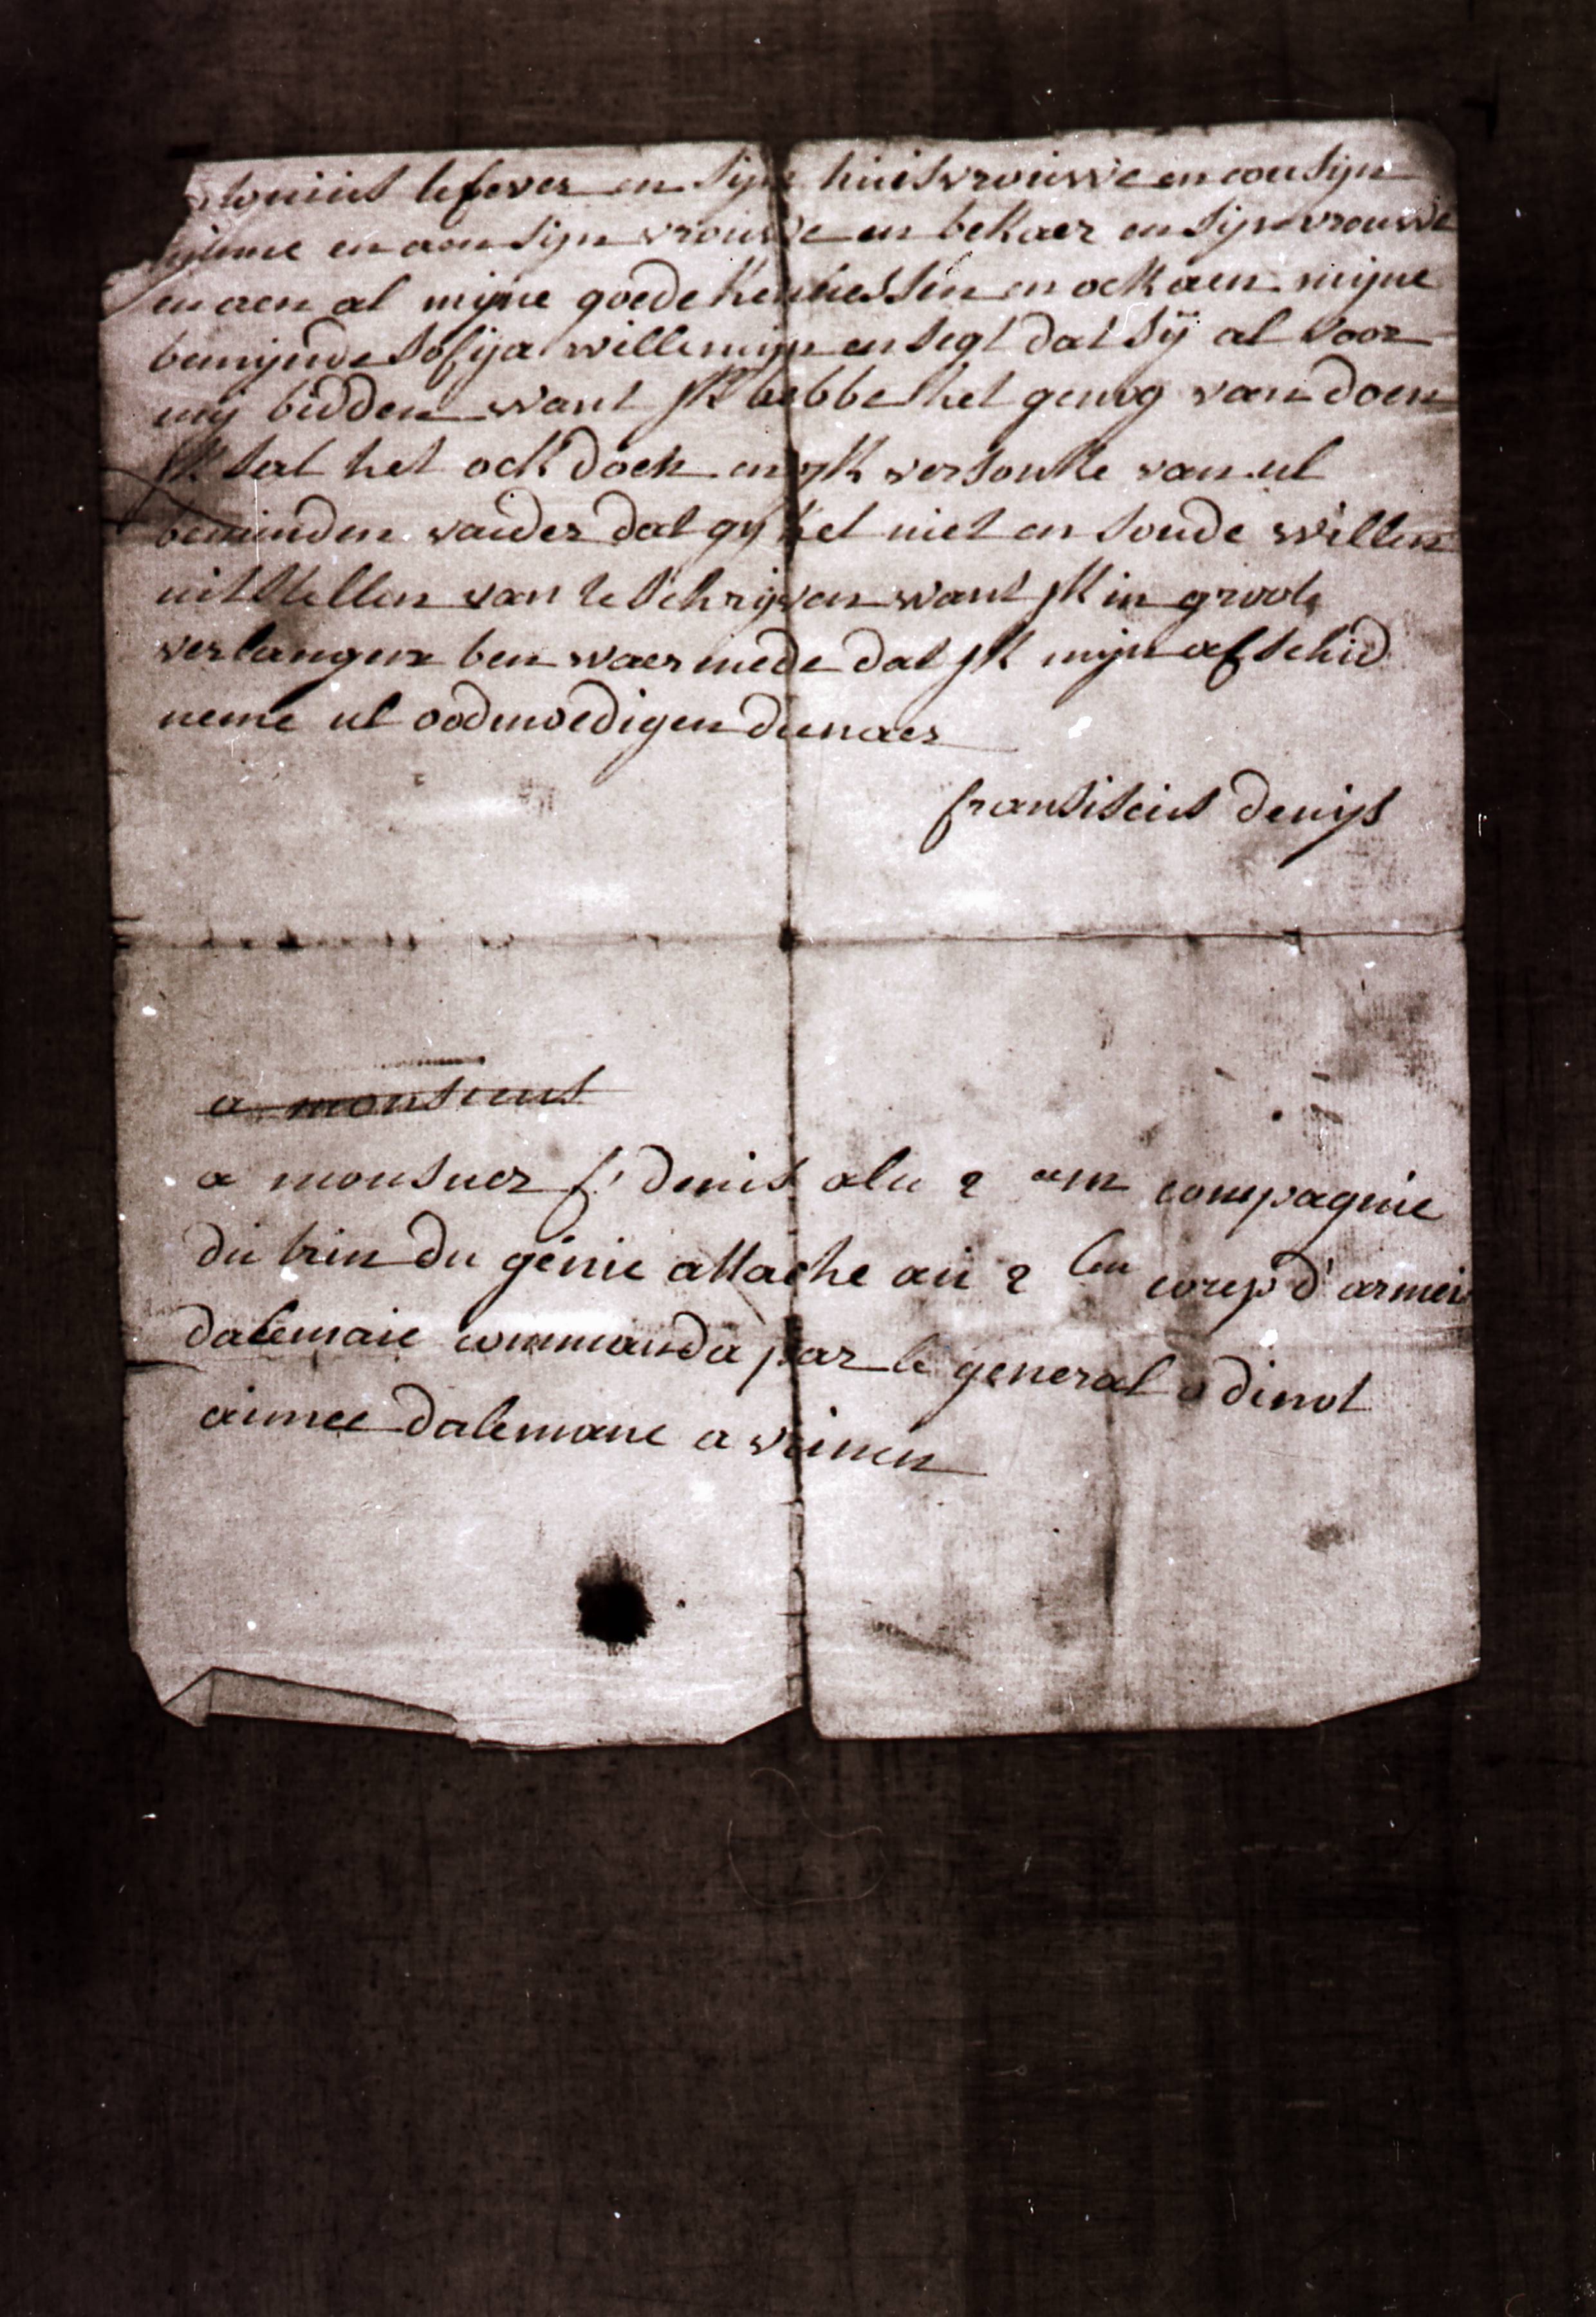 tonius lefever en sijn huisvrouwe en aen sijn
en aen sijn vrouwe en bekaer en sijn vrouwe
en aen al mijne goede kennessen en ock aen mijne
bemijnde sofija willemijn en segt dat sij al voor
mij bidden want jk hebbe het genog van doen
jk sal het ock doen en jk versouke van ul
beminden vaider dat gij het niet en soude willen
uit stellen van te schrijven want jk in groot
verlangen ben waer mede dat jk mijn afschid
neme ul oodmoedigen dienaer
fransiscus denijs
a monsieus
a monsuer f denis alu 2 em compagnie
du trin du génie attache au 2 em corps d'armei
dalemaie commanda par le general odinot
aimee dalemane a